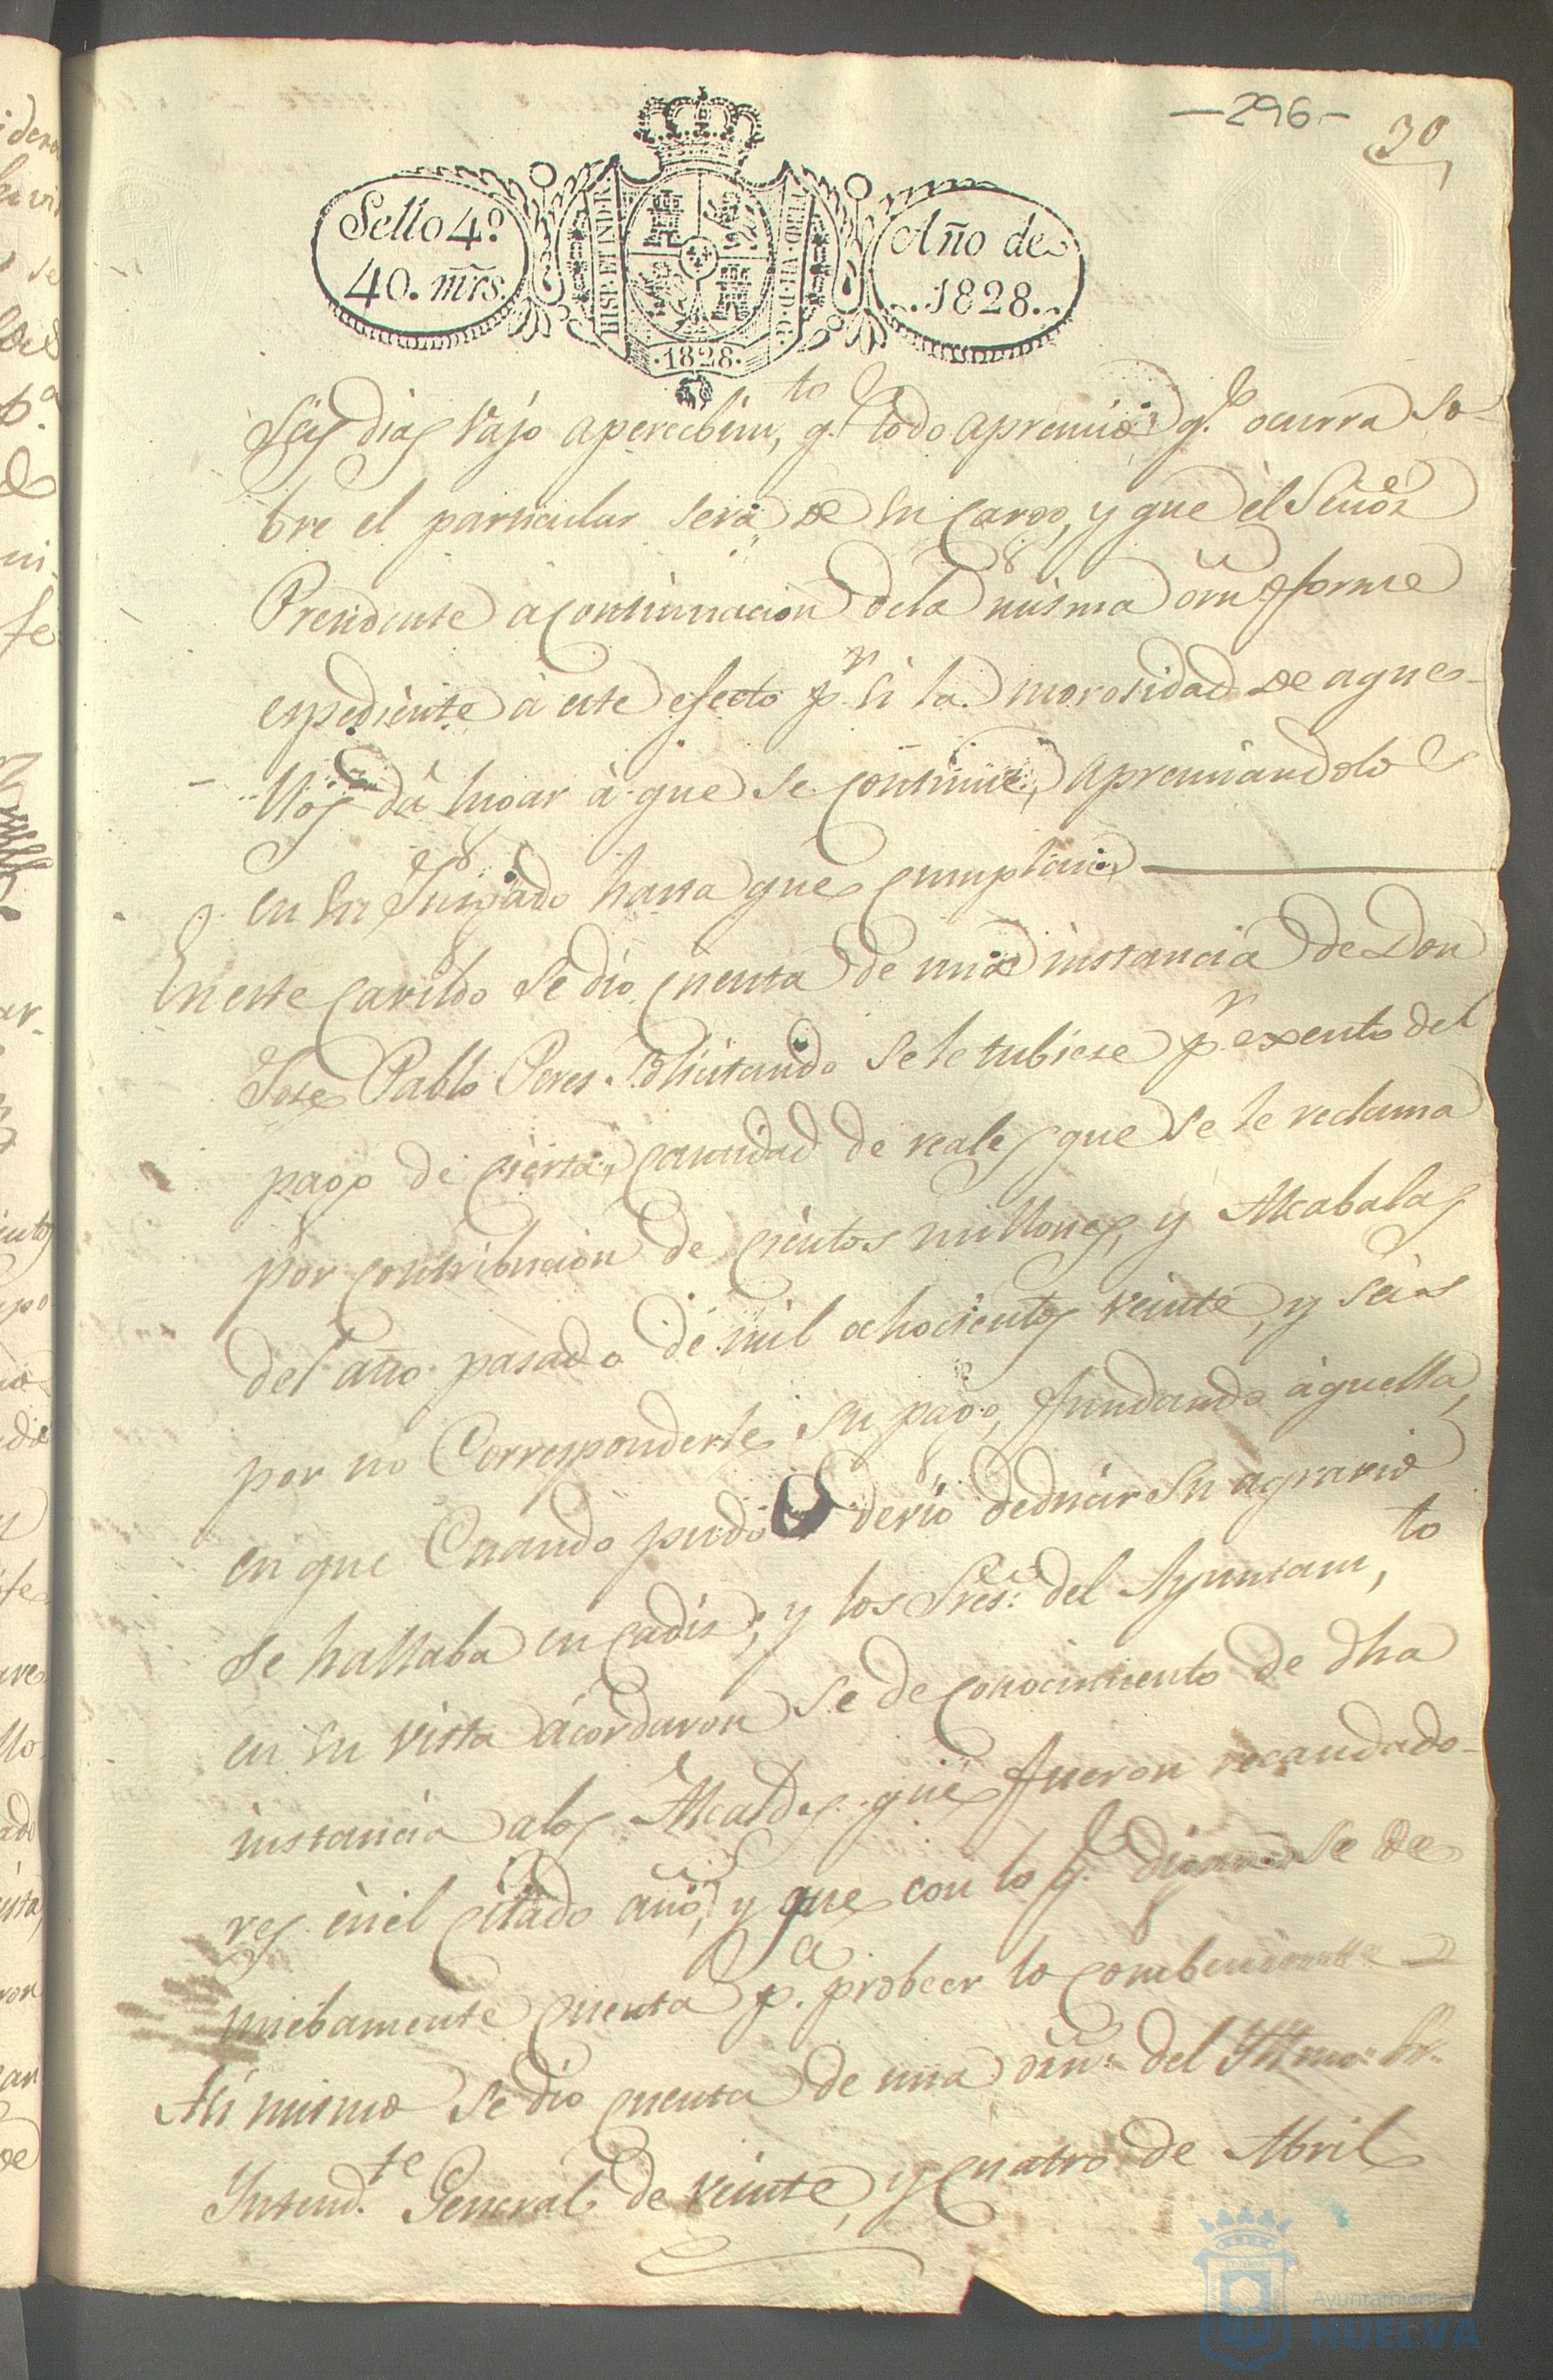 —296—
30
Sello 4.º
40. mrs.
HISP. ET IND. R.
FERD. VII. D. G.
·1828·
Año de
1828.
Seis dias vajo apercibim,to q.e todo apremio q.e ocurra so-
bre el particular será de su cargo, y que el Señor
Presidente á continuacion dela misma orn forme
espediente á este efecto p.r si la morosidad de aque-
llos dá lugar á que se continúe, apremiandolos
en su Jusgado hasta que cumplan
En este Cavildo se dio cuenta de una instancia de Don
Jose Pablo Peres solicitando se le tubiese p.r exento del
pago de cierta cantidad de reales que se le reclama
por contribucion de cientos millones, y Alcabalas
del año pasado de mil ochocientos veinte, y seis
por no Corresponderle su pago, fundando aquella,
en que Cuando pudo y devio deducir su agravio
se hallaba en Cadis; y los Sres. del Ayuntam,to
en su vista acordaron se de conocimiento de dha
instancia alos Alcaldes que fueron recaudado-
res en el citado año, y que con lo q.e digan se de
nuebamente cuenta p.a probeer lo combeniente
Asi mismo se dio cuenta de una orn. del Yltmo. Sr.
Yntend.te General de veinte, y cuatro de Abril
Ayuntamiento de
HUELVA